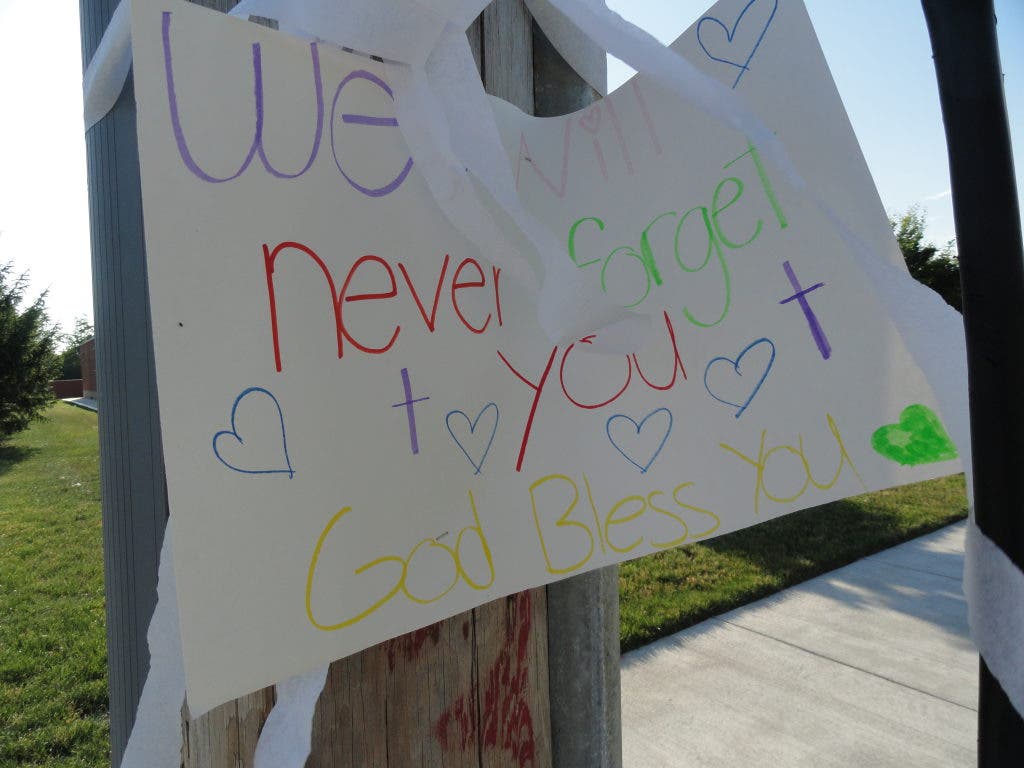 We will
never forget
you
God Bless You